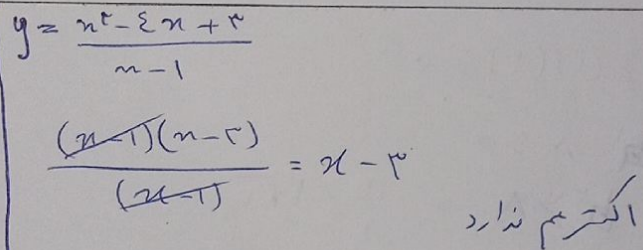 y = (x² - ۴x + ۳) / (x - ۱)
(x-۱)(x-۳) / (x-۱) = x - ۳
اکسترمم ندارد